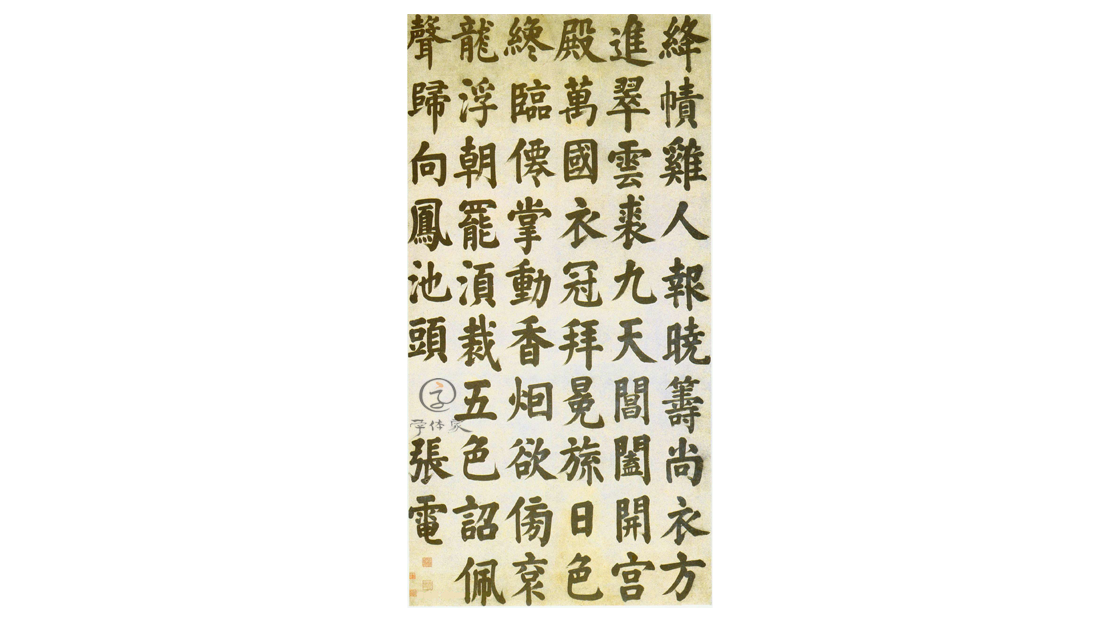 絳幘雞人報曉籌尚衣方
進翠雲裘九天閶闔開宮
殿萬國衣冠拜冕旒日色
纔臨僊掌動香烟欲傍袞
龍浮朝罷湏裁五色詔佩
聲歸向鳳池頭
張電
字体家